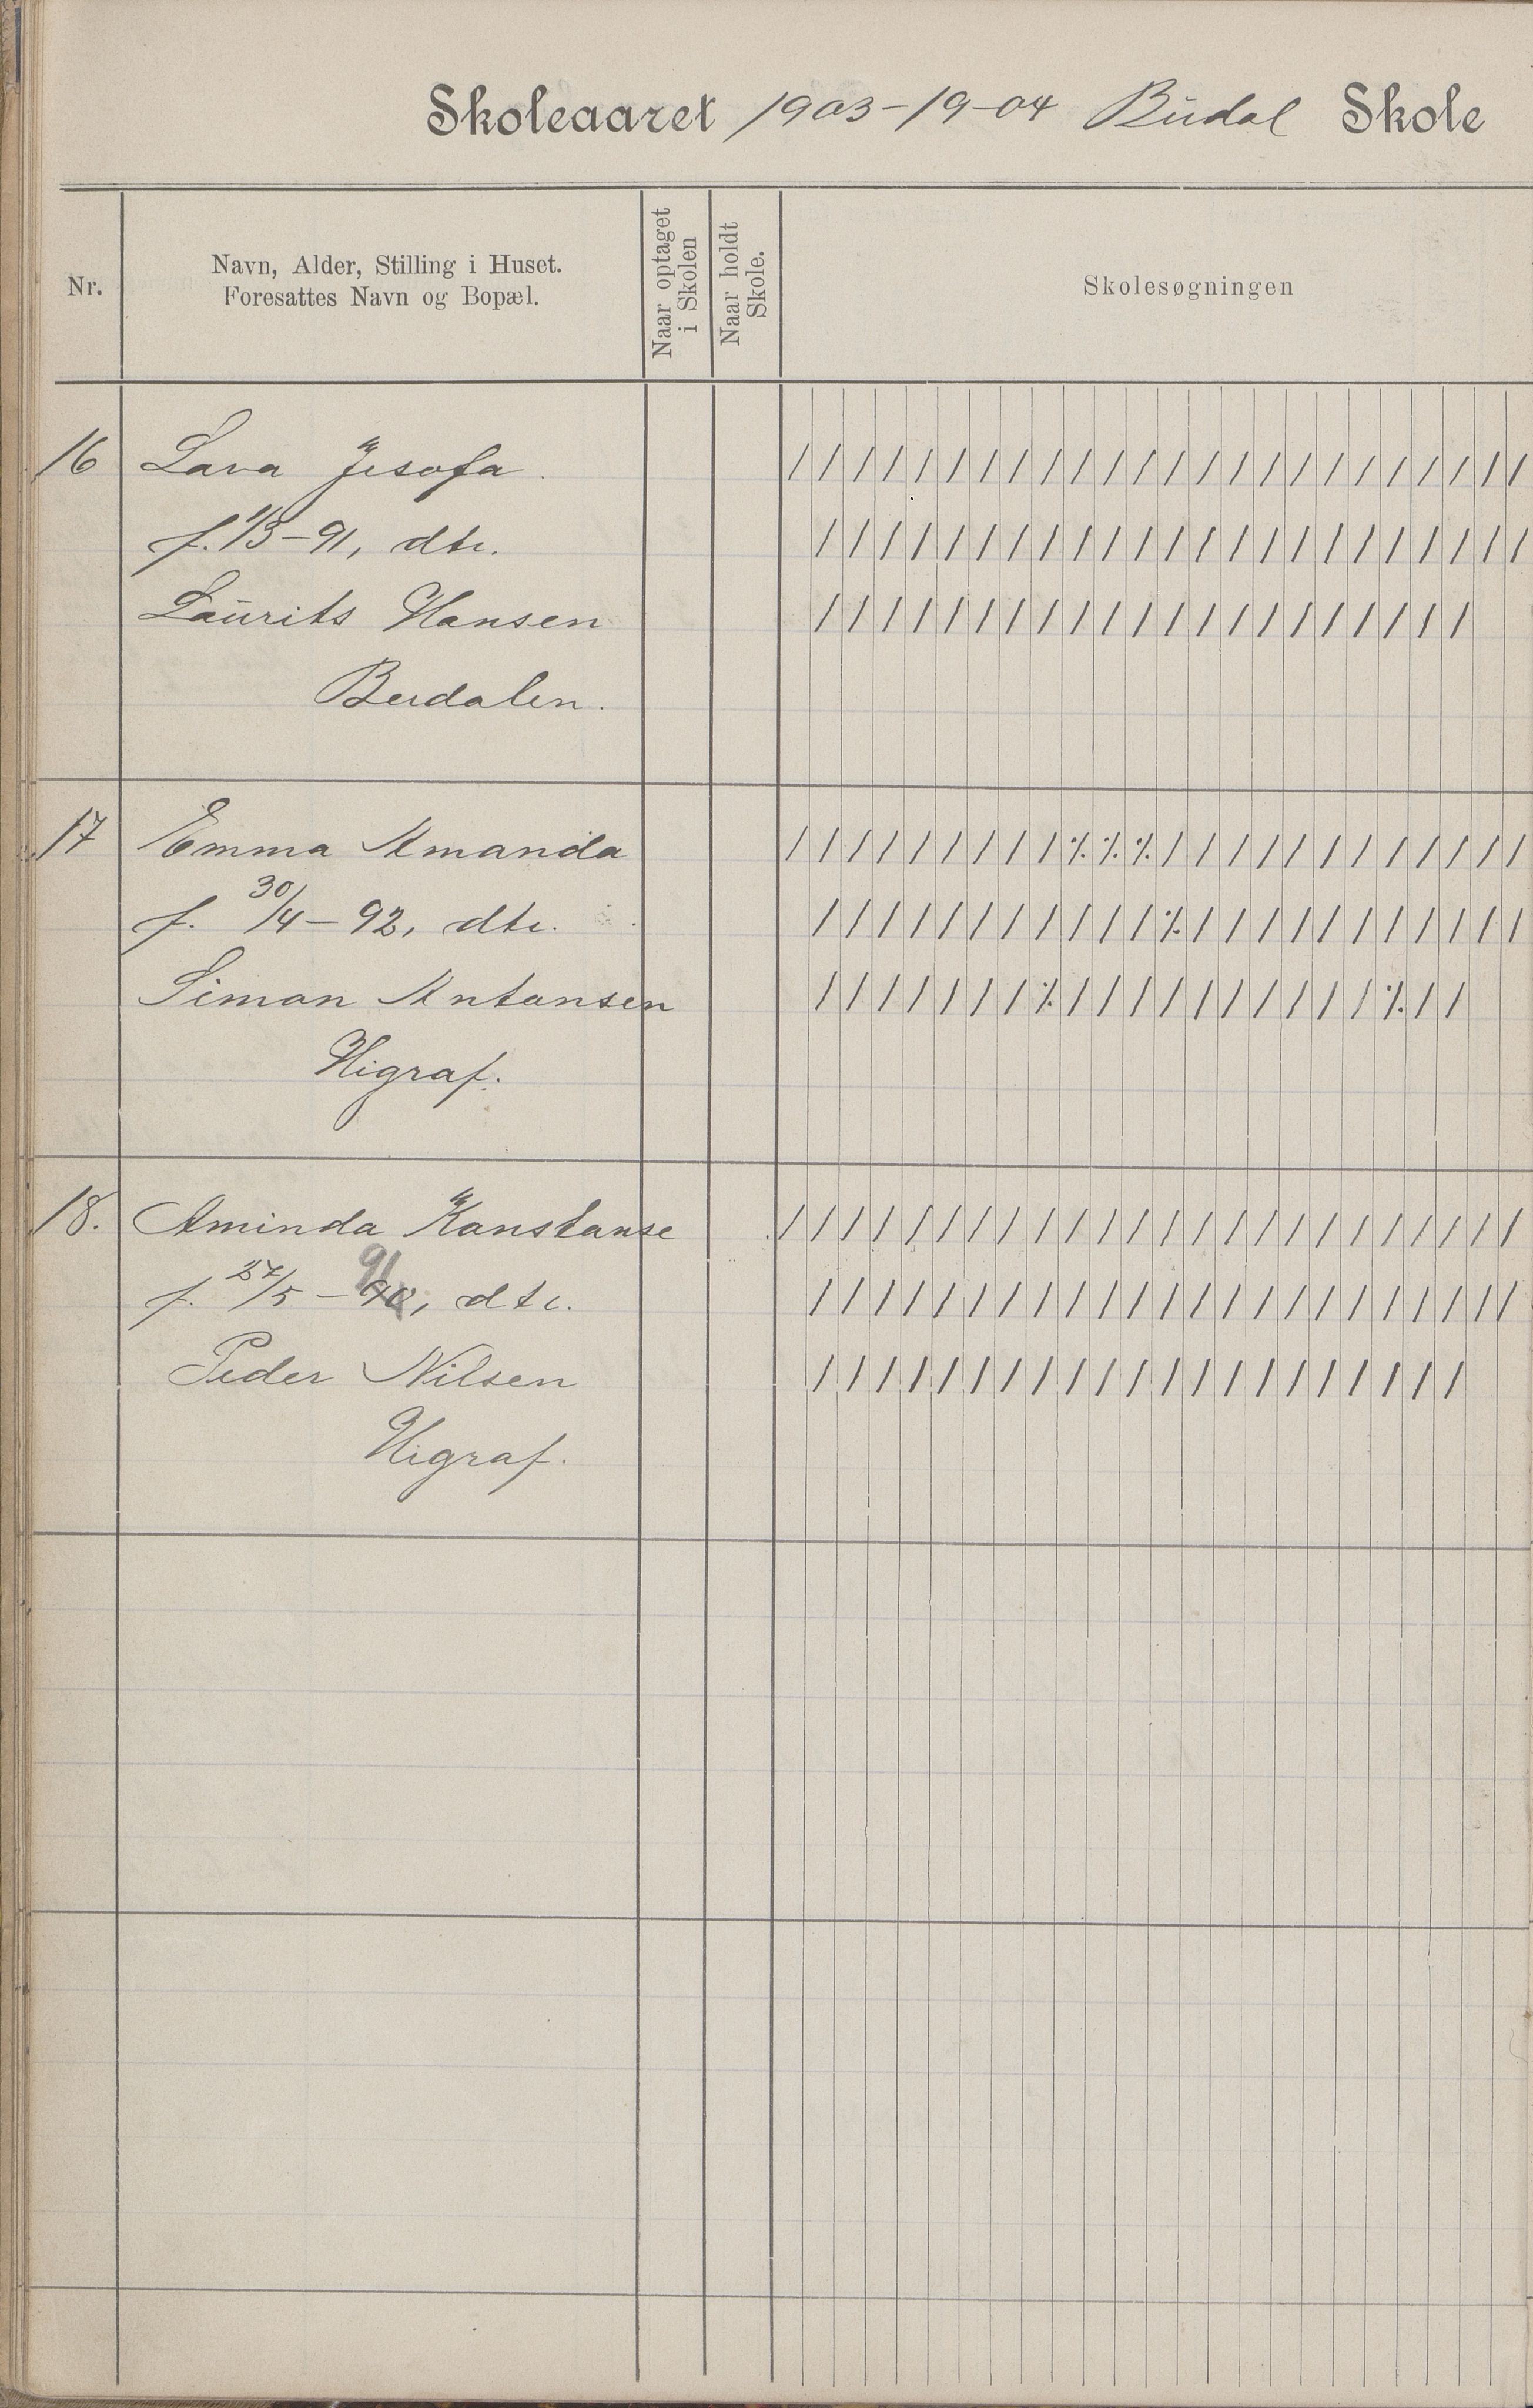 Skoleaaret 1903-19-04 Budal Skole
Nr.
Navn, Alder, Stilling i Huset.
Foresattes Navn og Bopæl.
Naar optaget
i Skolen
Naar holdt
Skole.
Skolesøgningen
16 Lava Jesofa. / / / / / / / / / / / / / / / / / / / / / / / /
f. 1/3-91, dtr. / / / / / / / / / / / / / / / / / / / / / / /
Laurits Hansen / / / / / / / / / / / / / / / / / / / / /
Berdalen.
17 Emma Amanda / / / / / / / / / ٪ ٪ ٪ / / / / / / / / / / / /
f. 30/4-92, dtr. / / / / / / / / / / / ٪ / / / / / / / / / / /
Simon Antonsen / / / / / / / ٪ / / / / / / / / / / ٪ / /
Higraf.
18. Aminda Konstanse / / / / / / / / / / / / / / / / / / / / / / / /
f. 27/5-90, dtr. 91 / / / / / / / / / / / / / / / / / / / / / / /
Peder Nilsen / / / / / / / / / / / / / / / / / / / / /
Higraf.